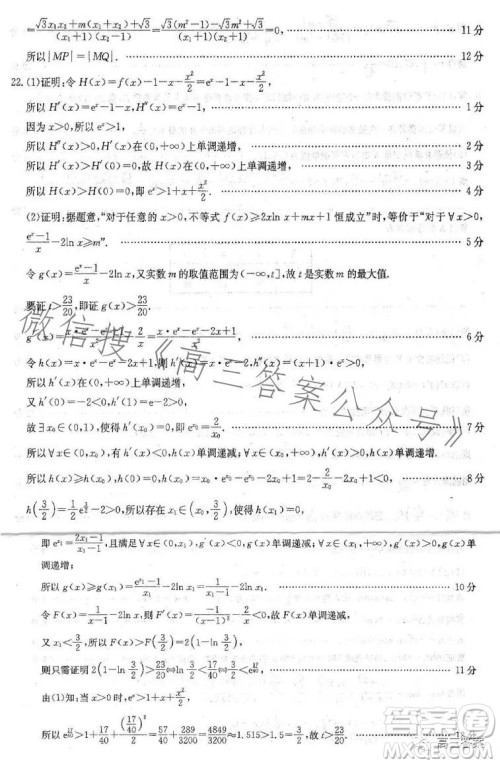 =\frac{\sqrt{3}x_1x_2+m(x_1+x_2)+\sqrt{3}}{(x_1+1)(x_2-1)}=\frac{\sqrt{3}(m^2-1)-\sqrt{3}m^2+\sqrt{3}}{(x_1+1)(x_2-1)}=0, 11分
所以|MP|=|MQ|. 12分
22.(1)证明:令H(x)=f(x)-1-x-\frac{x^2}{2}=e^x-1-x-\frac{x^2}{2},
所以H′(x)=e^x-1-x,H″(x)=e^x-1. 1分
因为x>0,所以e^x>1,
所以H″(x)>0,H′(x)在(0,+∞)上单调递增, 2分
所以H′(x)>H′(0)=0,H(x)在(0,+∞)上单调递增, 3分
所以H(x)>H(0)=0,即e^x>1+x+\frac{x^2}{2}. 4分
(2)证明:据题意,“对于任意的x>0,不等式f(x)≥2xln x+mx+1恒成立”时,等价于“对于∀x>0,
\frac{e^x-1}{x}-2ln x≥m”. 5分
令g(x)=\frac{e^x-1}{x}-2ln x,又实数m的取值范围为(-∞,t],故t是实数m的最大值.
要证t>\frac{23}{20},即证g(x)>\frac{23}{20}.
g′(x)=\frac{x·e^x-e^x+1}{x^2}-\frac{2}{x}=\frac{x·e^x-e^x-2x+1}{x^2}, 6分
令h(x)=x·e^x-e^x-2x+1(x>0),则h′(x)=x·e^x-2,h″(x)=(x+1)·e^x>0,
所以h′(x)在(0,+∞)上单调递增,
又h′(0)=-2<0,h′(1)=e-2>0,
故∃x_0∈(0,1),使得h′(x_0)=0,即e^{x_0}=\frac{2}{x_0}. 7分
所以∀x∈(0,x_0),有h′(x)<0,h(x)单调递减;∀x∈(x_0,+∞),h′(x)>0,h(x)单调递增.
所以h(x)≥h(x_0)=x_0·e^{x_0}-e^{x_0}-2x_0+1=3-\frac{2}{x_0}-2x_0<0, 8分
h(\frac{3}{2})=\frac{1}{2}e^{\frac{3}{2}}-2>0,所以存在x_1∈(1,\frac{3}{2}),使得h(x_1)=0,
即e^{x_1}=\frac{2x_1-1}{x_1-1},且满足∀x∈(0,x_1),g′(x)<0,g(x)单调递减;∀x∈(x_1,+∞),g′(x)>0,g(x)单
调递增;
所以g(x)≥g(x_1)=\frac{e^{x_1}-1}{x_1}-2ln x_1=\frac{1}{x_1-1}-2ln x_1. 10分
令F(x)=\frac{1}{x-1}-2ln x,则F′(x)<0,F(x)单调递减,
又x_1<\frac{3}{2},所以F(x)>F(\frac{3}{2})=2(1-ln\frac{3}{2}).
则只需证明2(1-ln\frac{3}{2})>\frac{23}{20}⇔ln\frac{3}{2}<\frac{17}{40}⇔\frac{3}{2}<e^{\frac{17}{40}} 11分
由(1)知:当x>0时,e^x>1+x+\frac{x^2}{2},
所以e^{\frac{17}{40}}>1+\frac{17}{40}+\frac{(\frac{17}{40})^2}{2}=\frac{57}{40}+\frac{289}{3200}=\frac{4849}{3200}≈1.515>1.5,故t>\frac{23}{20}.
微信搜《高三答案公众号》
高三答案